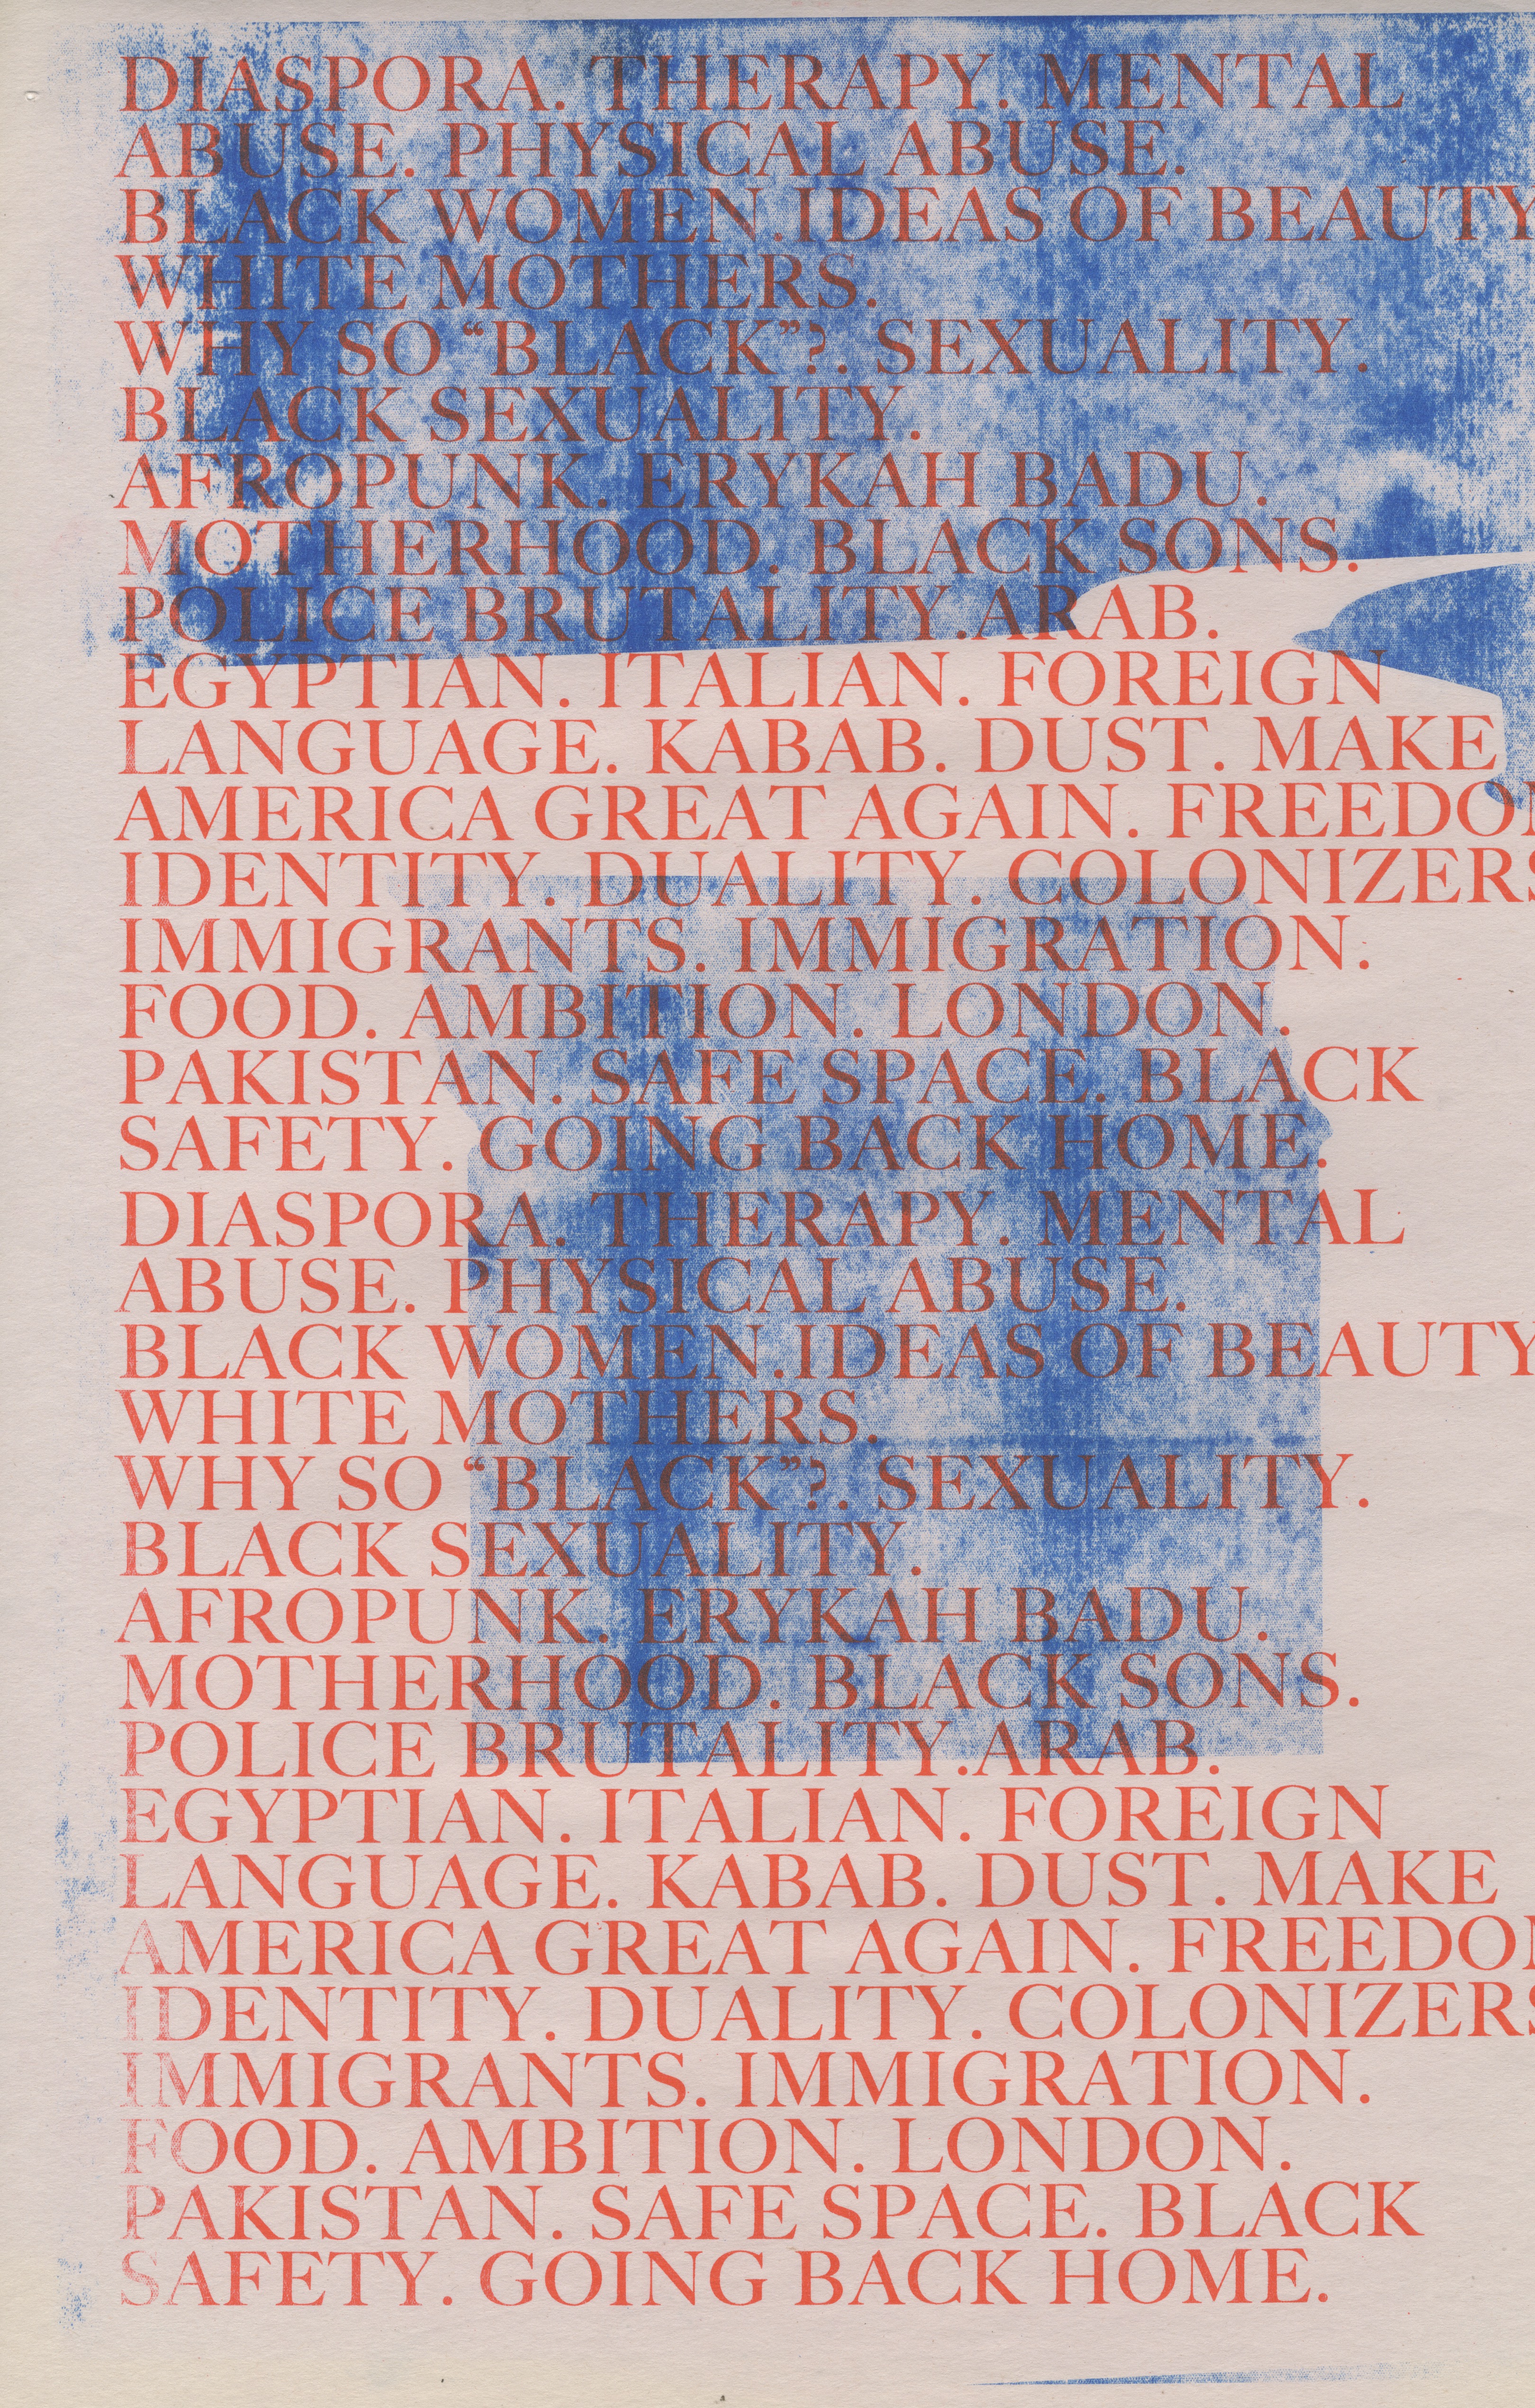 DIASPORA. THERAPY. MENTAL
ABUSE. PHYSICAL ABUSE.
BLACK WOMEN.IDEAS OF BEAUTY
WHITE MOTHERS.
WHY SO “BLACK”?. SEXUALITY.
BLACK SEXUALITY.
AFROPUNK. ERYKAH BADU.
MOTHERHOOD. BLACK SONS.
POLICE BRUTALITY.ARAB.
EGYPTIAN. ITALIAN. FOREIGN
LANGUAGE. KABAB. DUST. MAKE
AMERICA GREAT AGAIN. FREEDO
IDENTITY. DUALITY. COLONIZERS
IMMIGRANTS. IMMIGRATION.
FOOD. AMBITION. LONDON.
PAKISTAN. SAFE SPACE. BLACK
SAFETY. GOING BACK HOME.
DIASPORA. THERAPY. MENTAL
ABUSE. PHYSICAL ABUSE.
BLACK WOMEN.IDEAS OF BEAUTY
WHITE MOTHERS.
WHY SO “BLACK”?. SEXUALITY.
BLACK SEXUALITY.
AFROPUNK. ERYKAH BADU.
MOTHERHOOD. BLACK SONS.
POLICE BRUTALITY.ARAB.
EGYPTIAN. ITALIAN. FOREIGN
LANGUAGE. KABAB. DUST. MAKE
AMERICA GREAT AGAIN. FREEDO
IDENTITY. DUALITY. COLONIZERS
IMMIGRANTS. IMMIGRATION.
FOOD. AMBITION. LONDON.
PAKISTAN. SAFE SPACE. BLACK
SAFETY. GOING BACK HOME.